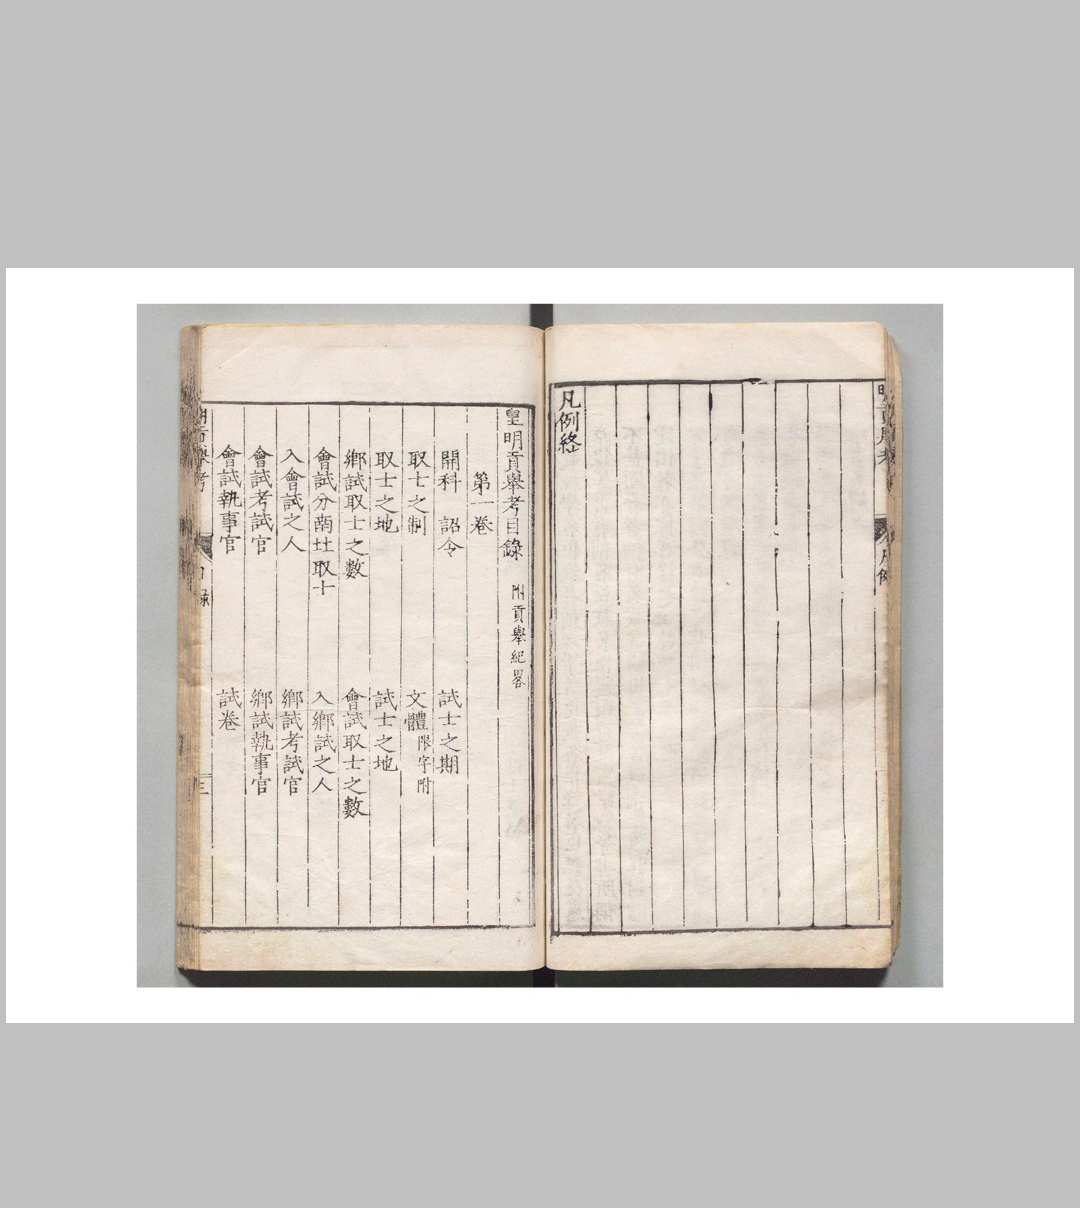 凡例終
皇明貢舉考目錄 附貢舉紀畧
第一卷
開科 詔令 試士之期
取士之制 文體限字附
取士之地 試士之地
鄉試取士之數 會試取士之數
會試分南北取士 入鄉試之人
入會試之人 鄉試考試官
會試考試官 鄉試執事官
會試執事官 試卷